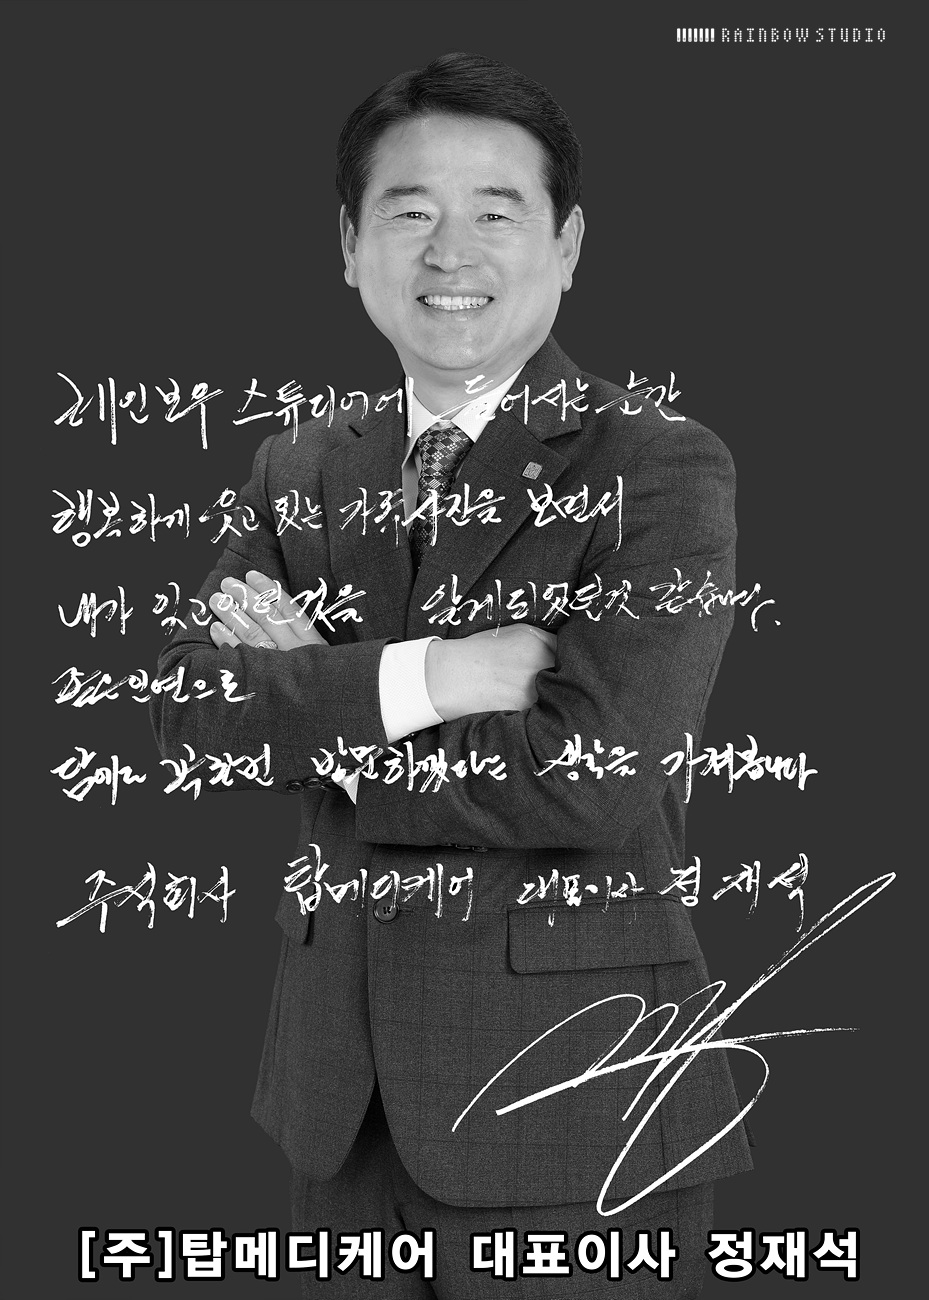 RAINBOW STUDIO
레인보우 스튜디어에 들어서는 순간
행복하게 웃고 있는 가족사진을 보면서
내가 잊고 있던 것을 알게되었던것 같습니다.
인연으로
담에 꼭 한번 방문하겠다는 생각을 가져봅니다
주식회사 탑메디케어 대표이사 정재석
[주]탑메디케어 대표이사 정재석